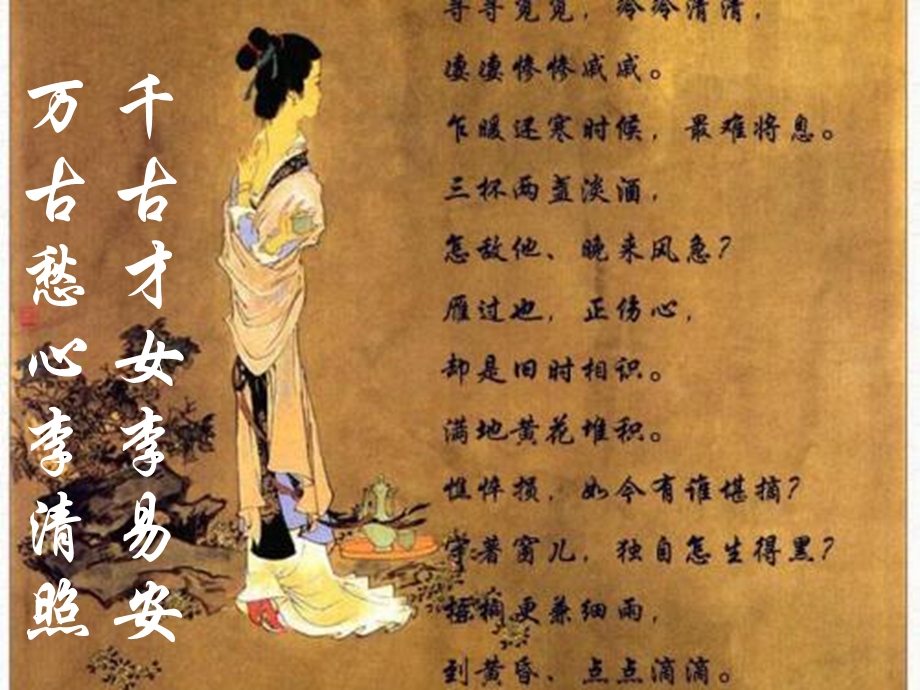 千古才女李易安
万古愁心李清照
寻寻觅觅，冷冷清清，
凄凄惨惨戚戚。
乍暖还寒时候，最难将息。
三杯两盏淡酒，
怎敌他、晚来风急？
雁过也，正伤心，
却是旧时相识。
满地黄花堆积。
憔悴损，如今有谁堪摘？
守著窗儿，独自怎生得黑？
梧桐更兼细雨，
到黄昏、点点滴滴。